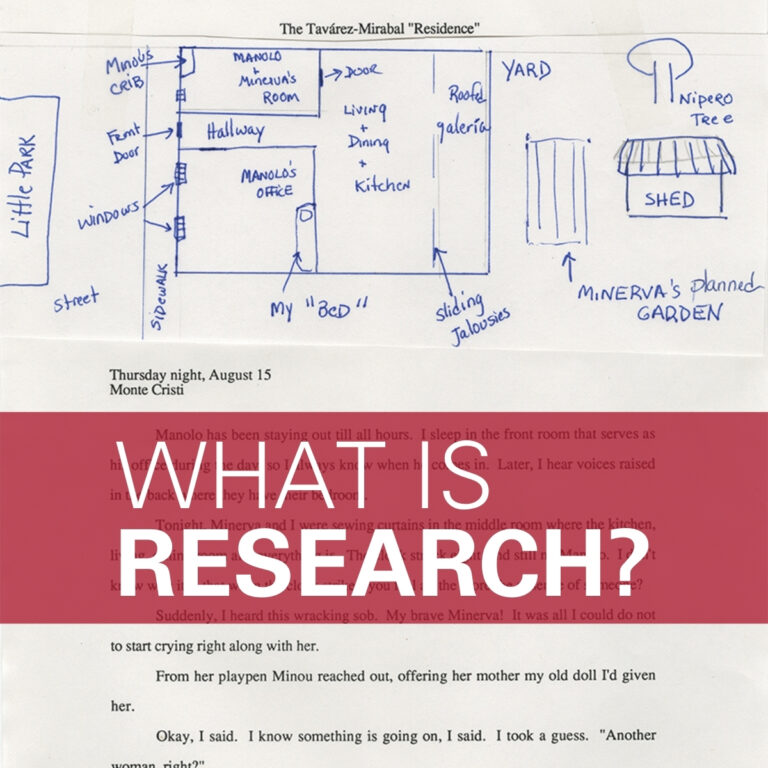 The Tavárez-Mirabal "Residence"
Minou's
CRIB
MANOLO
+
Minerva's
Room
DOOR
YARD
Nipero
Tree
Roofed
galería
Living
+
Dining
+
Kitchen
Front
Door
Hallway
Little PARK
MANOLO'S
OFFICE
SHED
windows
street
SIDEWALK
My "BED"
sliding
Jalousies
MINERVA'S planned
GARDEN
Thursday night, August 15
Monte Cristi
Manolo has been staying out till all hours. I sleep in the front room that serves as
office during the day so I always know when he comes in. Later, I hear voices raised
in back where they have their bedroom.
Tonight, Minerva and I were sewing curtains in the middle room where the kitchen,
room everything is. The still no I don't
know of someone?
WHAT IS
RESEARCH?
Suddenly, I heard this wracking sob. My brave Minerva! It was all I could do not
to start crying right along with her.
From her playpen Minou reached out, offering her mother my old doll I'd given
her.
Okay, I said. I know something is going on, I said. I took a guess. "Another
woman, right?"